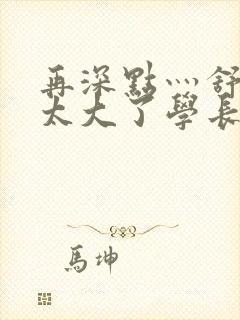 再深點灬舒
太大了學長
馬坤